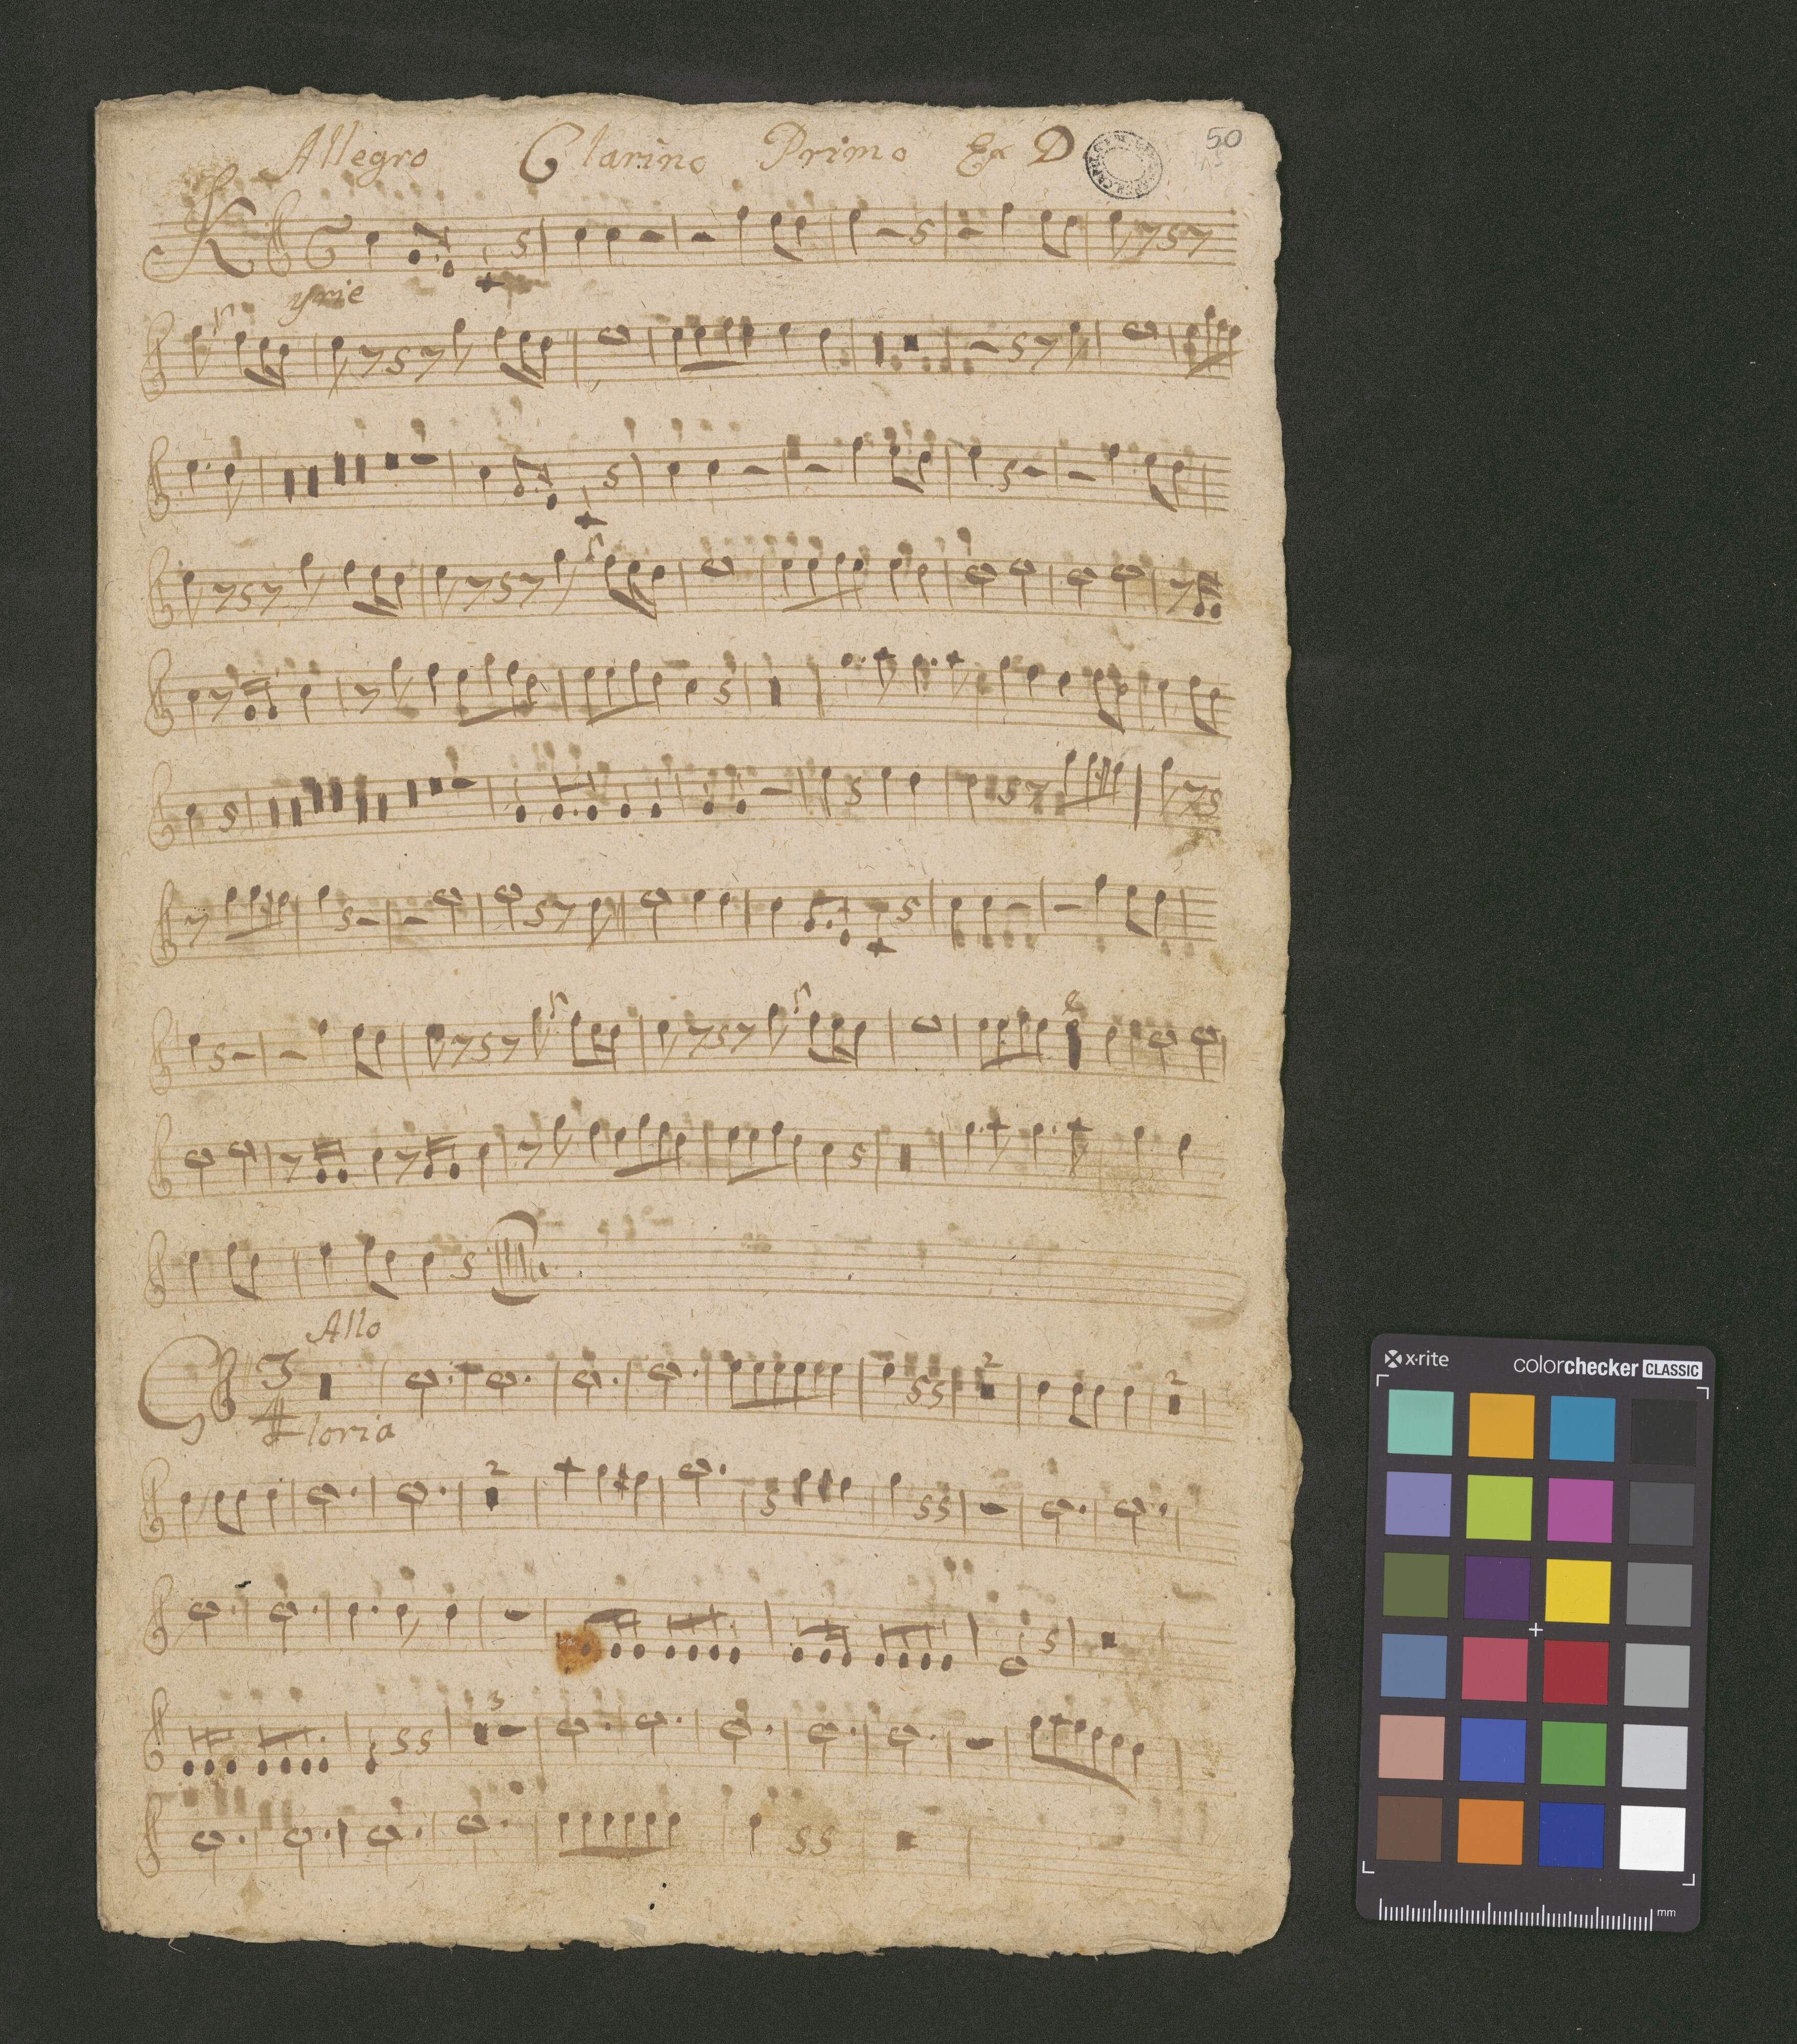 Allegro Clarino Primo Ex D 50
Kyrie
Allo
3
4
2
2
Gloria
2
3
x·rite colorchecker CLASSIC
mm